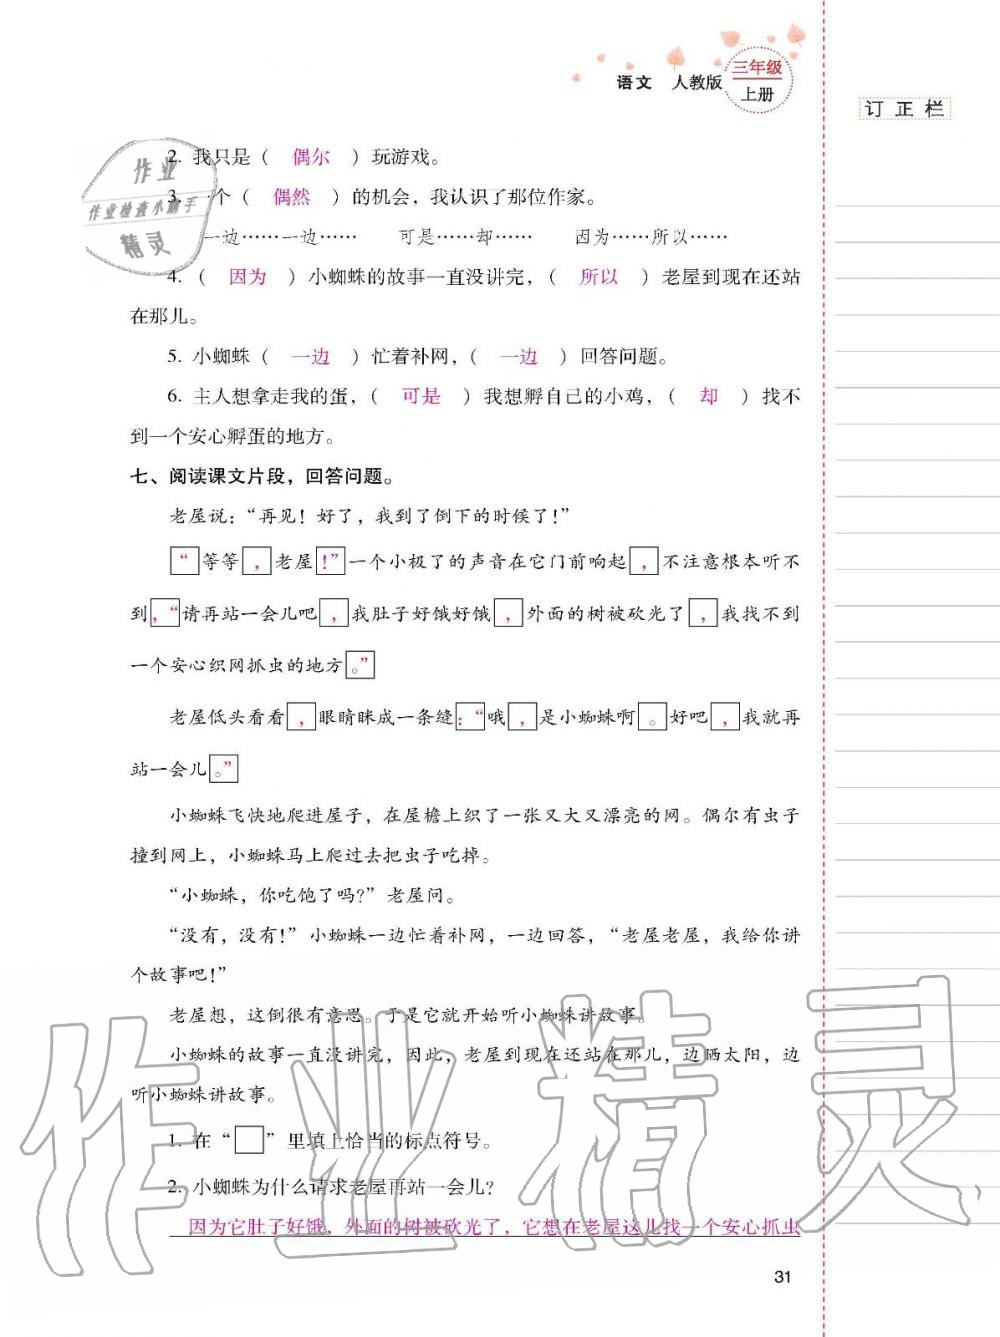 语文 人教版 三年级
上册
订正栏
2. 我只是（ 偶尔 ）玩游戏。
3. 一个（ 偶然 ）的机会，我认识了那位作家。
一边……一边…… 可是……却…… 因为……所以……
4.（ 因为 ）小蜘蛛的故事一直没讲完，（ 所以 ）老屋到现在还站
在那儿。
5. 小蜘蛛（ 一边 ）忙着补网，（ 一边 ）回答问题。
6. 主人想拿走我的蛋，（ 可是 ）我想孵自己的小鸡，（ 却 ）找不
到一个安心孵蛋的地方。
七、阅读课文片段，回答问题。
老屋说：“再见！好了，我到了倒下的时候了！”
“等等，老屋！”一个小极了的声音在它门前响起，不注意根本听不
到，“请再站一会儿吧，我肚子好饿好饿，外面的树被砍光了，我找不到
一个安心织网抓虫的地方。”
老屋低头看看，眼睛眯成一条缝：“哦，是小蜘蛛啊。好吧，我就再
站一会儿。”
小蜘蛛飞快地爬进屋子，在屋檐上织了一张又大又漂亮的网。偶尔有虫子
撞到网上，小蜘蛛马上爬过去把虫子吃掉。
“小蜘蛛，你吃饱了吗？”老屋问。
“没有，没有！”小蜘蛛一边忙着补网，一边回答，“老屋老屋，我给你讲
个故事吧！”
老屋想，这倒很有意思。于是它就开始听小蜘蛛讲故事。
小蜘蛛的故事一直没讲完，因此，老屋到现在还站在那儿，边晒太阳，边
听小蜘蛛讲故事。
1. 在“□”里填上恰当的标点符号。
2. 小蜘蛛为什么请求老屋再站一会儿？
因为它肚子好饿，外面的树被砍光了，它想在老屋这儿找一个安心抓虫
31
作业
作业检查小助手
精灵
作业精灵